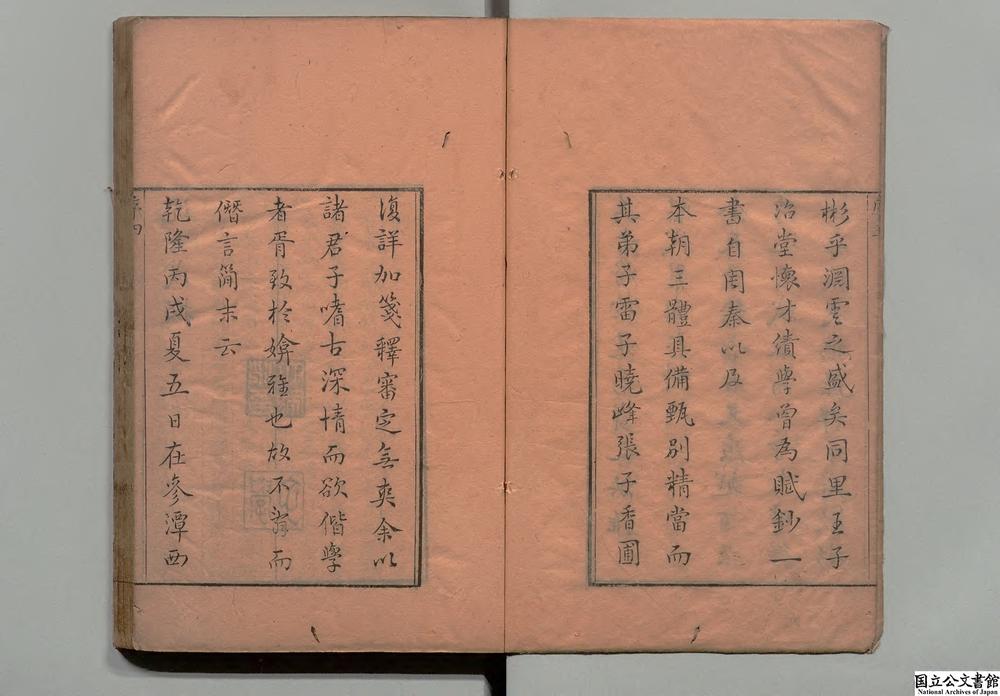 彬乎淵雲之盛矣同里王子
冶堂懷才績學曾為賦鈔一
書自周秦以及
本朝三體具備甄別精當而
其弟子雷子曉峰張子香圃
復詳加箋釋審定無爽余以
諸君子嗜古深情而欲偕學
者胥致於媕雅也故不辭而
僭言簡末云
乾隆丙戌夏五日在參潭西
序四
国立公文書館
National Archives of Japan